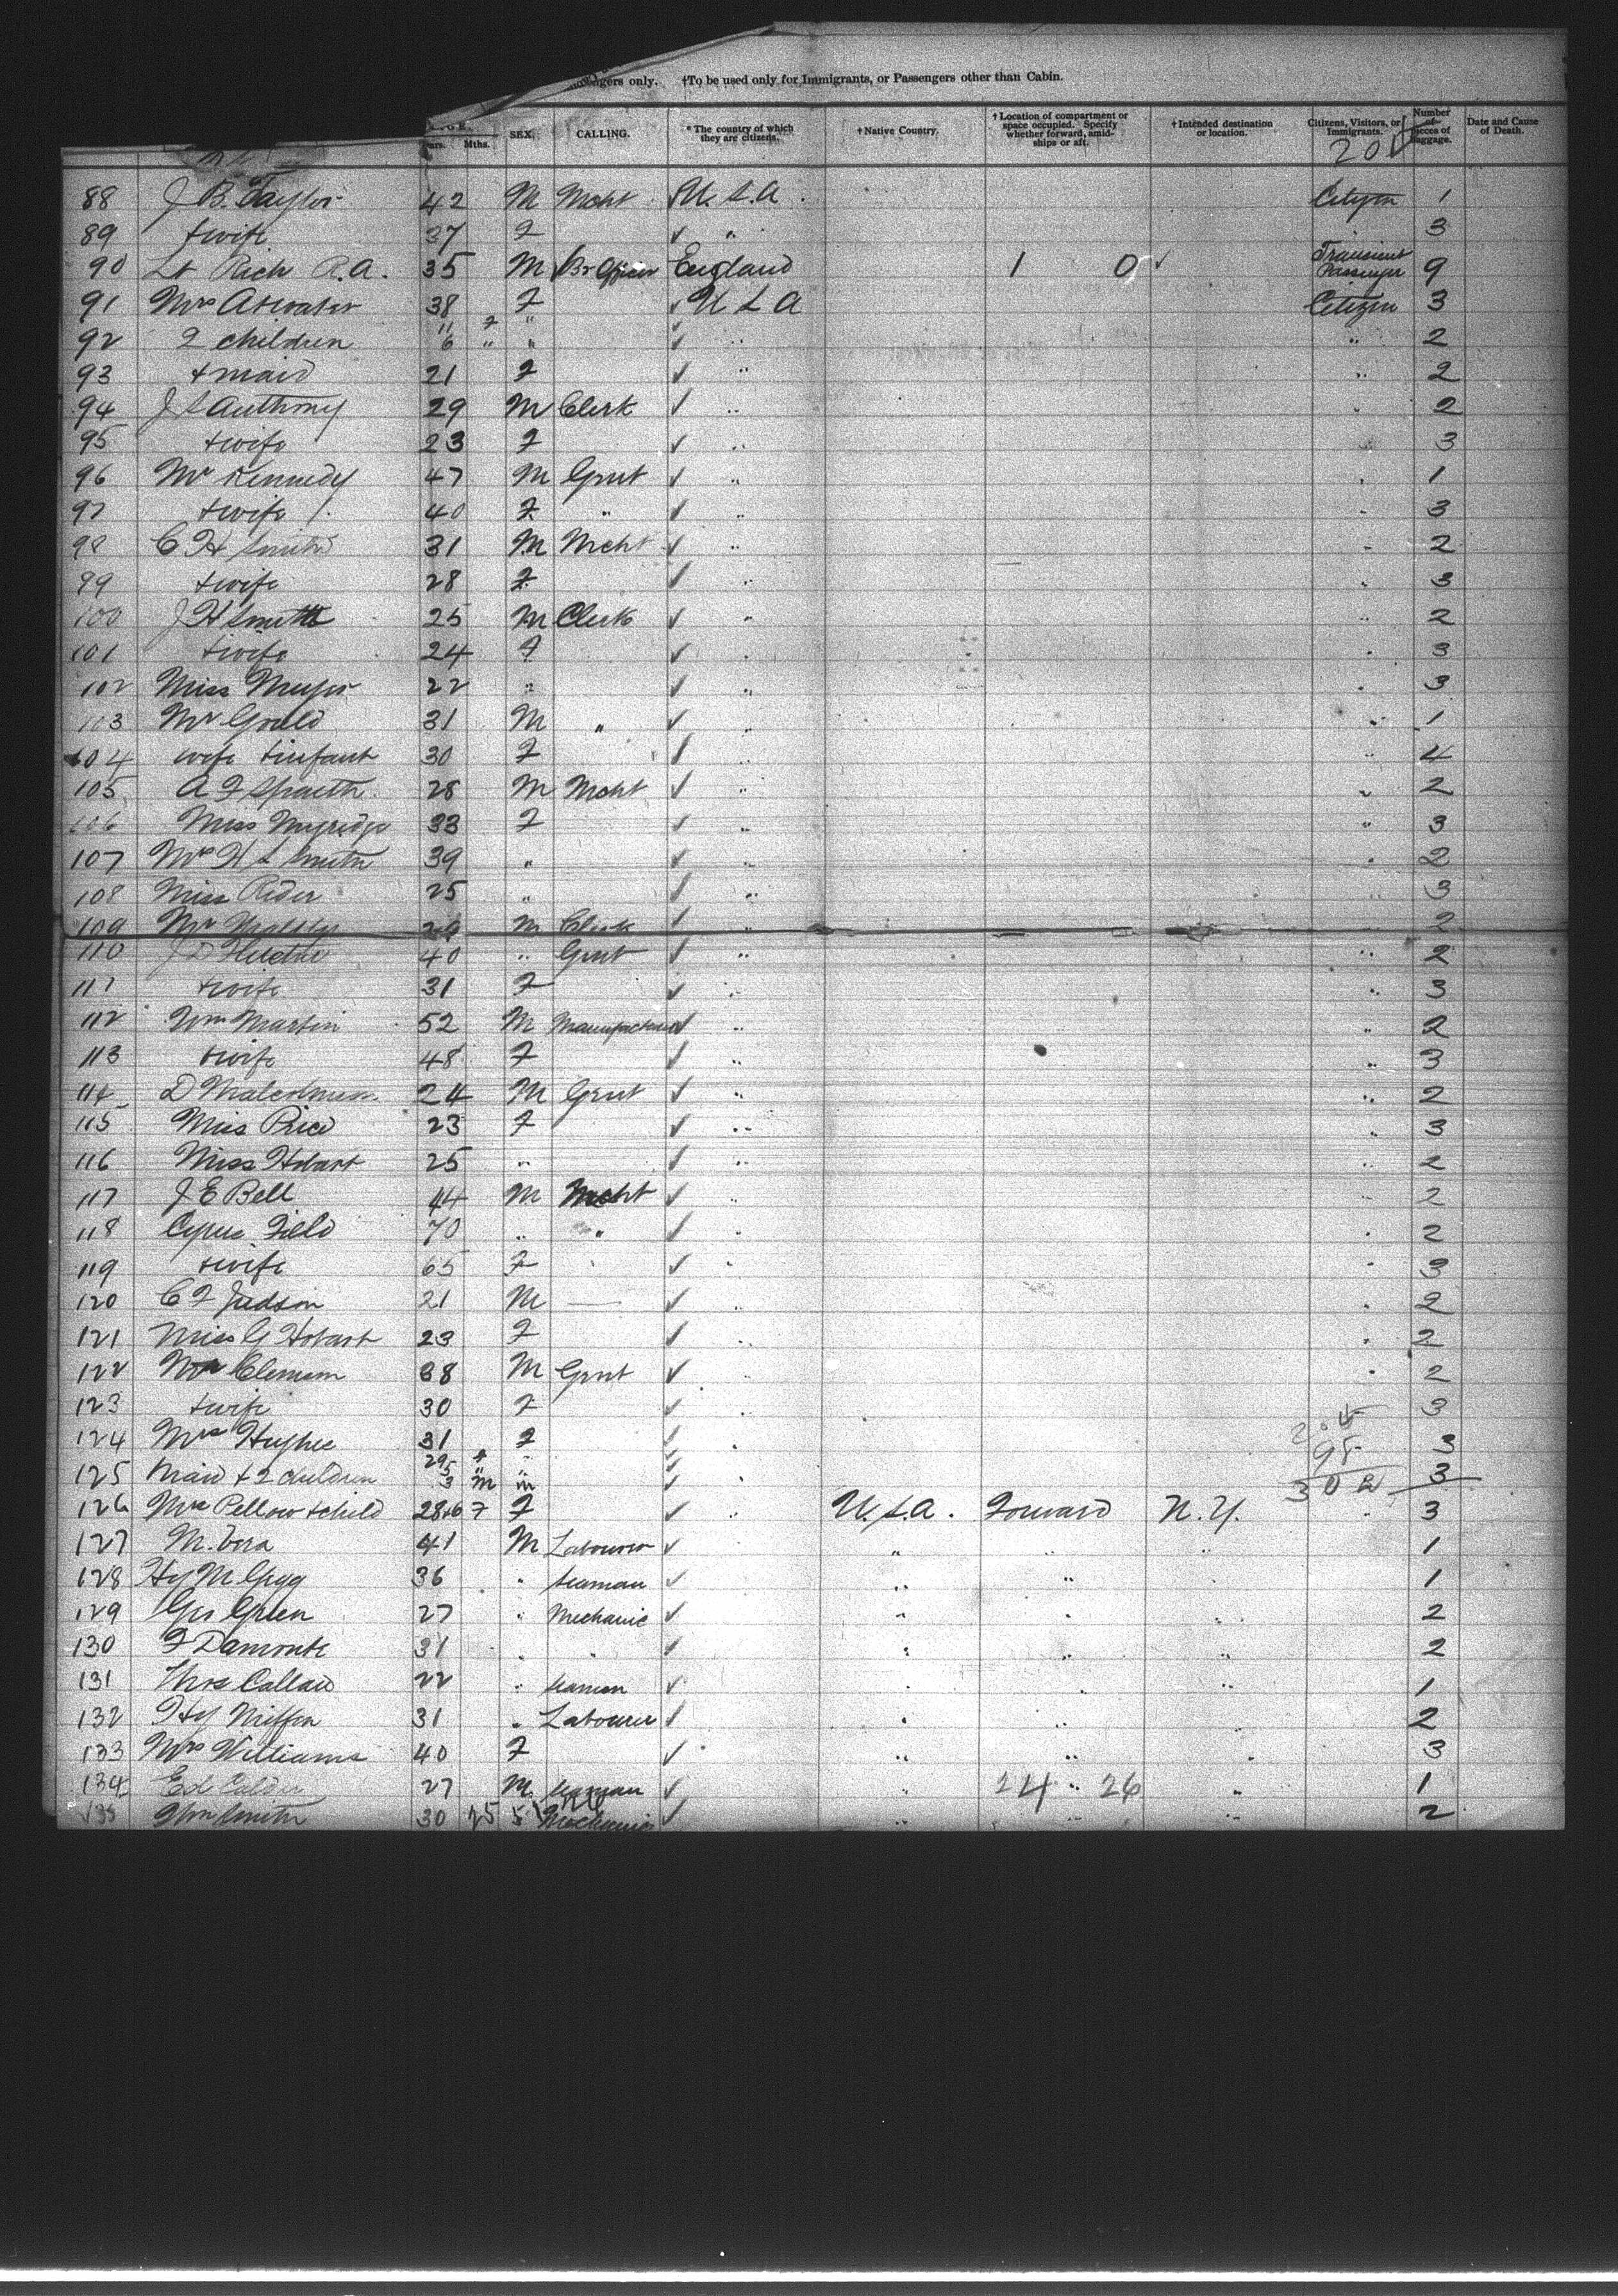 gers only. †To be used only for Immigrants, or Passengers other than Cabin.
Mths. SEX. CALLING. * The country of which they are citizens. † Native Country. † Location of compartment or space occupied. Specify whether forward, amid-ships or aft. † Intended destination or location. Citizens, Visitors, or Immigrants. Number of pieces of baggage. Date and Cause of Death.
20
88 J B. Taylor 42 M Mcht U. S. A. Citizen 1
89 + wife 37 F ✓ " 3
90 Lt Rich R.A. 35 M Br Officer England 1 0 ✓ Transient Passenger 9
91 Mrs Atwater 38 F ✓ U S A Citizen 3
92 2 children 11 6 F " " " ✓ " " 2
93 + maid 21 F ✓ " " 2
94 J S Anthony 29 M Clerk ✓ " " 2
95 + wife 23 F ✓ " " 3
96 Mr Kennedy 47 M Gent ✓ " " 1
97 + wife 40 F " ✓ " " 3
98 C H Smith 31 M Mcht ✓ " " 2
99 + wife 28 F ✓ " " 3
100 J H Smith 25 M Clerk ✓ " " 2
101 + wife 24 F ✓ " " 3
102 Miss 22 " ✓ " " 3
103 Mr Gould 31 M " ✓ " " 1
104 wife + infant 30 F ✓ " " 4
105 A F Spaeth 28 M Mcht ✓ " " 2
106 Miss 33 F ✓ " " 3
107 Mrs H S Smith 39 " ✓ " " 2
108 Miss Rider 25 " ✓ " " 3
109 Mr M Clerk ✓ " " 2
110 J D 40 " Gent ✓ " " 2
111 + wife 31 F ✓ " " 3
112 Wm Martin 52 M Manufacturer ✓ " " 2
113 + wife 48 F ✓ " " 3
114 D 24 M Gent ✓ " " 2
115 Miss Price 23 F ✓ " " 3
116 Miss Hobart 25 " ✓ " " 2
117 J E Bell 44 M Mcht ✓ " " 2
118 Cyrus Field 70 " " ✓ " " 2
119 + wife 65 F ✓ " " 3
120 C F Judson 21 M — ✓ " " 2
121 Miss G Hobart 23 F ✓ " " 2
122 Clemson 38 M Gent ✓ " " 2
123 + wife 30 F ✓ " 3
124 Mrs Hughes 31 F ✓ " 3
125 Maid + 2 children 29 5 3 M m ✓ " 3
126 Mrs Pellow + child 28 + 6 F F ✓ " U. S. A. Forward N. Y. " 3
127 M. Vera 41 M Labourer ✓ " " " 1
128 Hy 36 " seaman ✓ " " 1
129 Geo Green 27 " Mechanic ✓ " " " 2
130 F Damonte 31 " " ✓ " " " 2
131 Thos 22 " seaman ✓ " " " 1
132 Hy 31 " Labourer ✓ " " " 2
133 Mrs Williams 40 F ✓ " " " 3
134 Ed 27 M seaman ✓ " 24 " 26 " 1
135 Wm Smith 30 Mechanic ✓ " " " 2